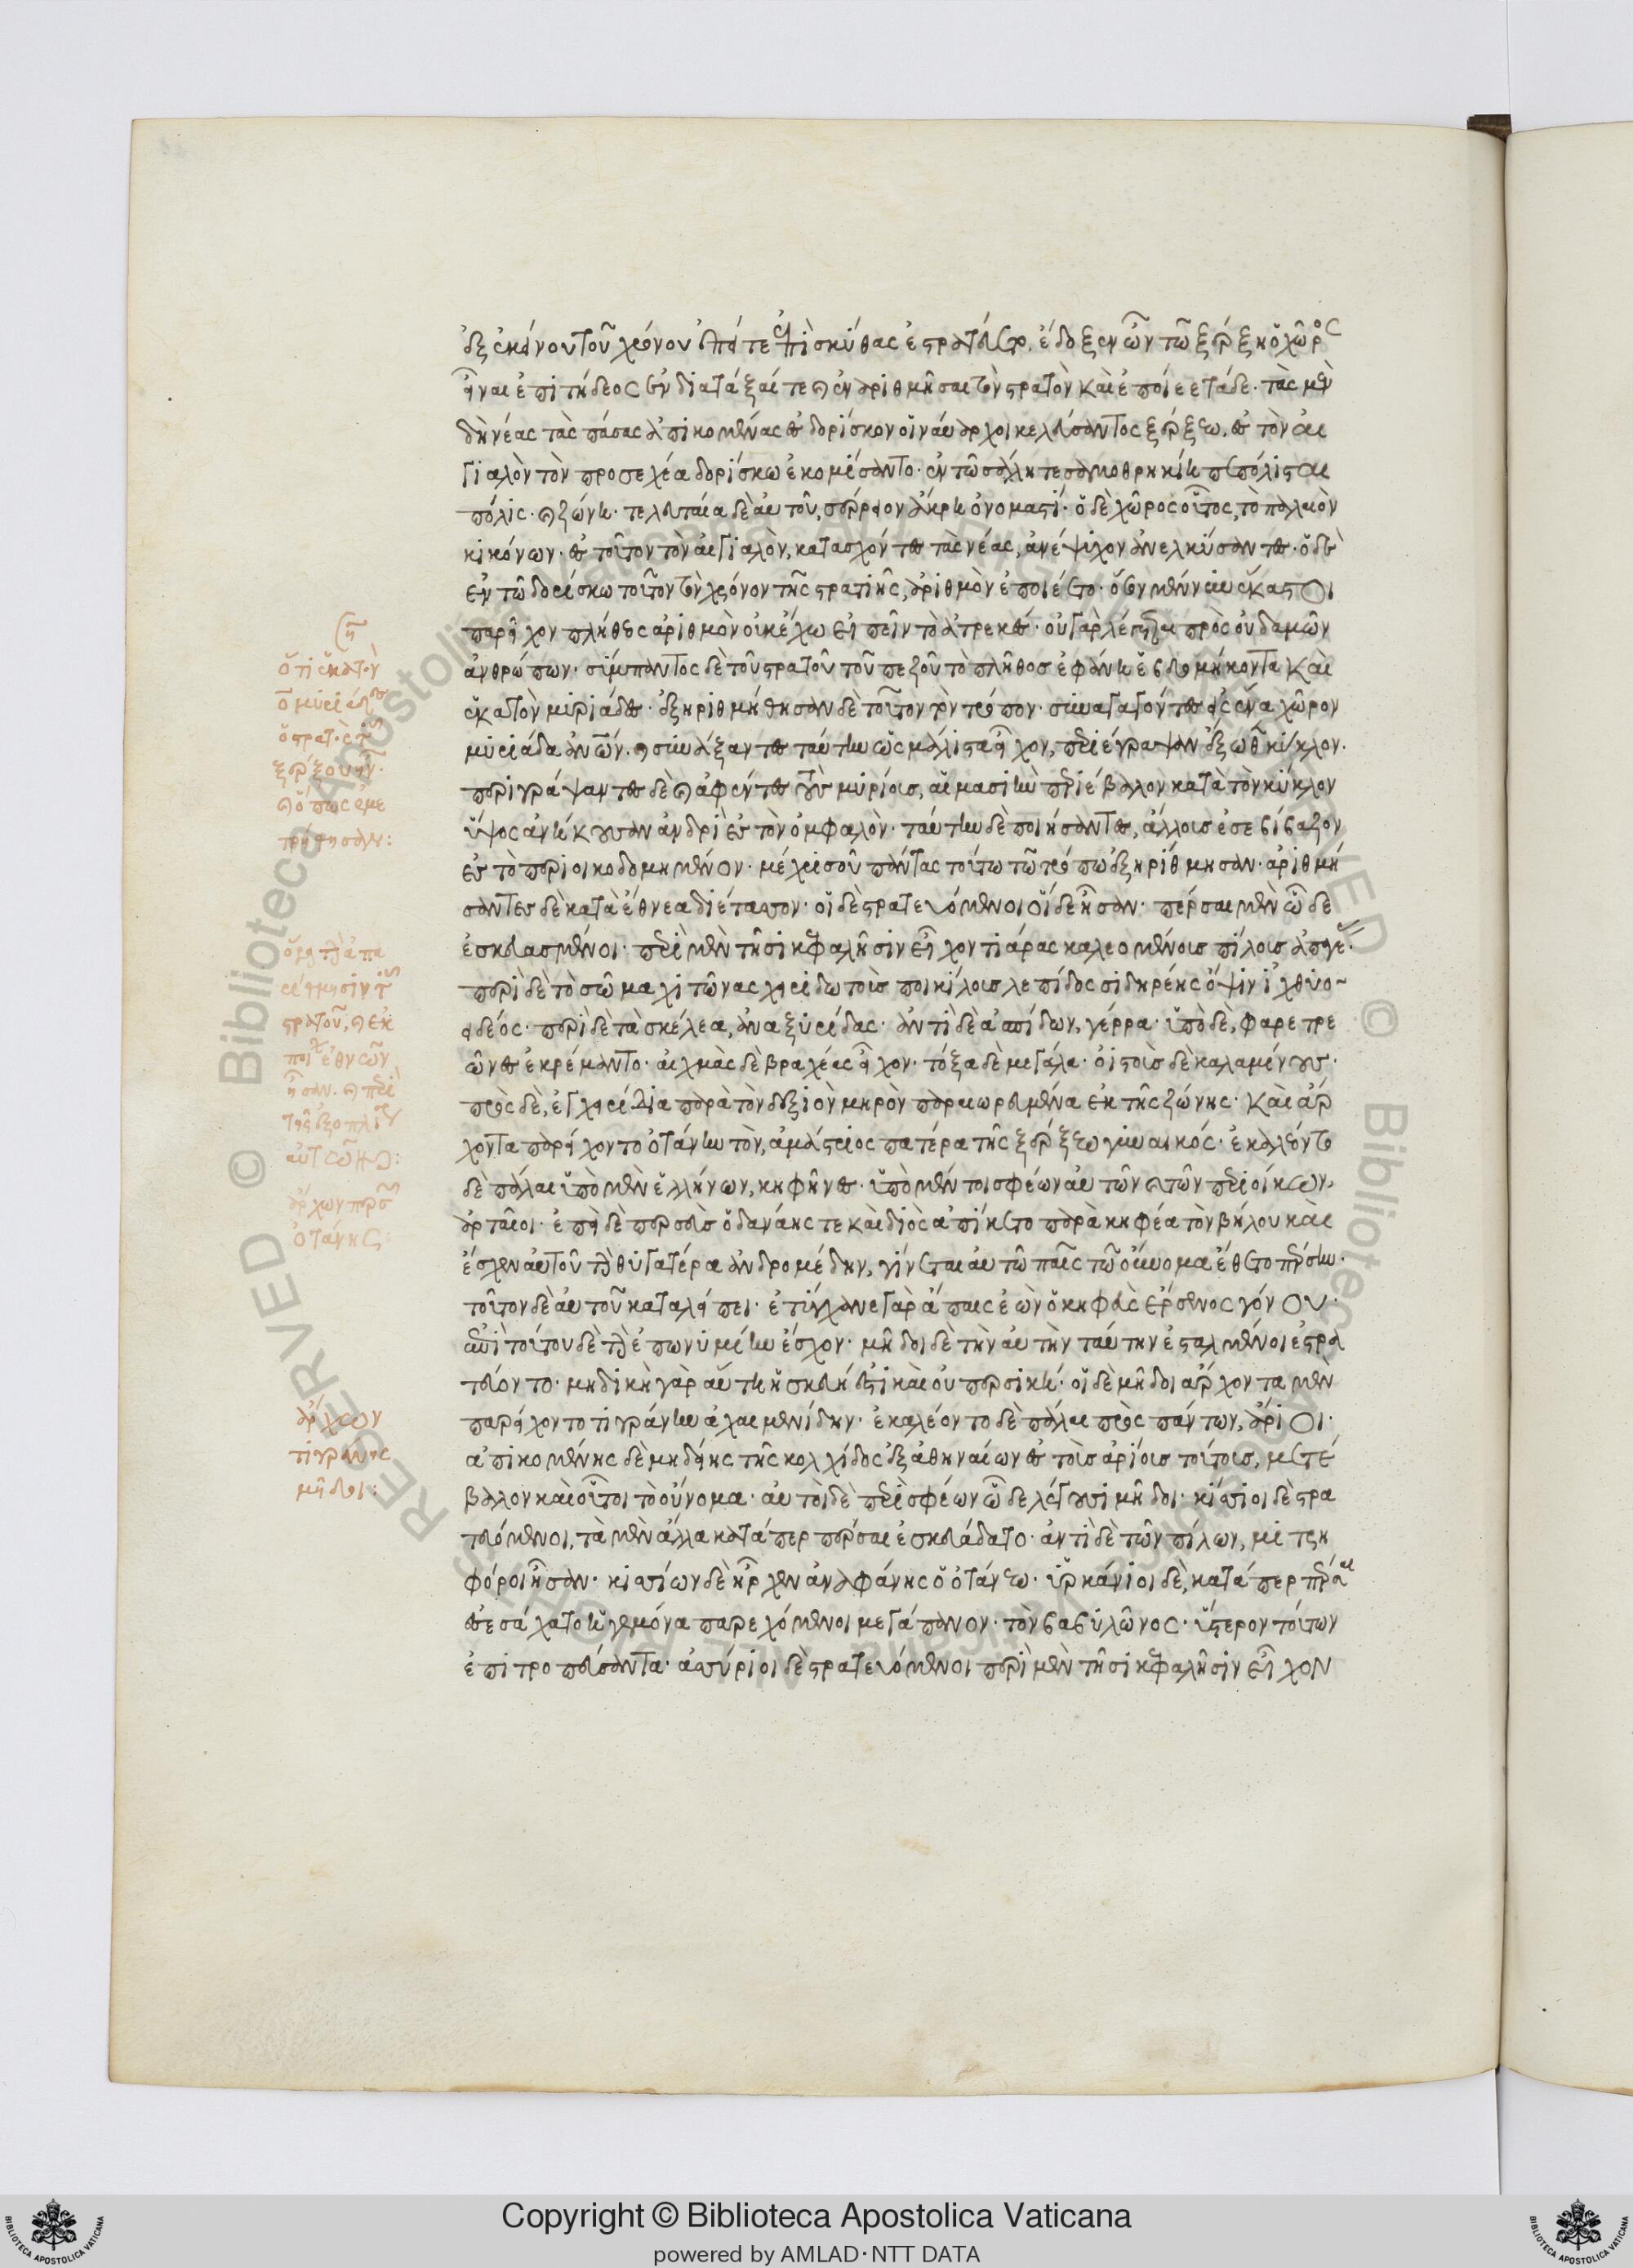 ἐξ ἐκείνου τοῦ χρόνου ἐπείτε ἐπὶ σκύθας ἐστρατεύετο. ἔδοξεν ὦν τῶ ξέρξη ὁ χῶρος
εἶναι ἐπιτήδεος ἐνδιατάξαί τε καὶ ἐναριθμῆσαι τὸν στρατὸν καὶ ἐποίεε τάδε. τὰς μὲν
δὴ νέας τὰς πάσας ἀπικομένας ἐς δορίσκον οἱ ναύαρχοι κελεύσαντος ξέρξεω, ἐς τὸν αἰ
γιαλὸν τὸν προσεχέα δορίσκω ἐκομίσαντο. ἐν τῶ σάλη τε σαμοθρηικίη πεπόλισται
πόλις. καὶ ζώνη. τελευταία δὲ αὐτοῦ, σέρρειον ἄκρη ὀνομαστή. ὁ δὲ χῶρος οὗτος, τὸ παλαιὸν
κικόνων. ἐς τοῦτον τὸν αἰγιαλὸν, κατασχόντες τὰς νέας, ἀνέψυχον ἀνελκύσαντες. ὁ δὲ
ἐν τῶ δορίσκω τοῦτον τὸν χρόνον τῆς στρατιῆς, ἀριθμὸν ἐποιέετο. ὅσον μέν νυν ἕκαστοι
παρεῖχον πλῆθος ἀριθμὸν οὐκ ἔχω εἰπεῖν τὸ ἀτρεκές. οὐ γὰρ λέγεται πρὸς οὐδαμῶν
ἀνθρώπων. σύμπαντος δὲ τοῦ στρατοῦ τοῦ πεζοῦ τὸ πλῆθος ἐφάνη ἑβδομήκοντα καὶ
ἑκατὸν μυριάδες. ἐξηρίθμησαν δὲ τοῦτον τὸν τρόπον. συναγαγόντες ἐς ἕνα χῶρον
μυριάδα ἀνθρώπων. καὶ συννάξαντες ταύτην ὡς μάλιστα εἶχον, περιέγραψαν ἔξωθεν κύκλον.
περιγράψαντες δὲ καὶ ἀφέντες τοὺς μυρίους, αἱμασιὴν περιέβαλον κατὰ τὸν κύκλον
ὕψος ἀνήκουσαν ἀνδρὶ ἐς τὸν ὀμφαλόν. ταύτην δὲ ποιήσαντες, ἄλλους ἐσεβίβαζον
ἐς τὸ περιοικοδομημένον. μέχρις οὗ πάντας τούτω τῶ τρόπω ἐξηρίθμησαν. ἀριθμή
σαντες δὲ κατὰ ἔθνεα διέτασσον. οἱ δὲ στρατευόμενοι οἵδε ἦσαν. πέρσαι μὲν ὧδε
ἐσκευασμένοι. περὶ μὲν τῆσι κεφαλῆσιν εἶχον τιάρας καλεομένους πίλους ἀπαγέας.
περὶ δὲ τὸ σῶμα χιτῶνας χειριδωτοὺς ποικίλους λεπίδος σιδηρέης ὄψιν ἰχθυο
ειδέος. περὶ δὲ τὰ σκέλεα, ἀναξυρίδας. ἀντὶ δὲ ἀσπίδων, γέρρα. ὑπὸ δὲ, φαρετρε
ῶνες ἐκρέμαντο. αἰχμὰς δὲ βραχέας εἶχον. τόξα δὲ μεγάλα. ὀϊστοὺς δὲ καλαμίνους.
πρὸς δὲ, ἐγχειρίδια παρὰ τὸν δεξιὸν μηρὸν παραιωρεύμενα ἐκ τῆς ζώνης. καὶ ἄρ
χοντα παρείχοντο ὀτάνην τὸν, ἀμάστριος πατέρα τῆς ξέρξεω γυναικός. ἐκαλέοντο
δὲ πάλαι ὑπὸ μὲν ἑλλήνων, κηφῆνες. ὑπὸ μέντοι σφέων αὐτῶν καὶ τῶν περιοίκων,
ἀρταῖοι. ἐπεὶ δὲ περσεὺς ὁ δανάης τε καὶ διὸς ἀπίκετο παρὰ κηφέα τὸν βήλου καὶ
ἔσχεν αὐτοῦ τὴν θυγατέρα ἀνδρομέδην, γίνεται αὐτῶ παῖς τῶ οὔνομα ἔθετο πέρσην.
τοῦτον δὲ αὐτοῦ καταλείπει. ἐτύγχανε γὰρ ἄπαις ἐὼν ὁ κηφεὺς ἔρσενος γόνου.
ἐπὶ τούτου δὲ τὴν ἐπωνυμίην ἔσχον. μῆδοι δὲ τὴν αὐτὴν ταύτην ἐσταλμένοι ἐστρα
τεύοντο. μηδικὴ γὰρ αὕτη ἡ σκευή ἐστι καὶ οὐ περσική. οἱ δὲ μῆδοι ἄρχοντα μὲν
παρείχοντο τιγράνην ἀχαιμενίδην. ἐκαλέοντο δὲ πάλαι πρὸς πάντων, ἄριοι.
ἀπικομένης δὲ μηδείης τῆς κολχίδος ἐξ ἀθηναίων ἐς τοὺς ἀρίους τούτους, μετέ
βαλον καὶ οὗτοι τὸ οὔνομα. αὐτοὶ δὲ περὶ σφέων ὧδε λέγουσι μῆδοι. κίσσιοι δὲ στρα
τευόμενοι, τὰ μὲν ἄλλα κατάπερ πέρσαι ἐσκευάδατο. ἀντὶ δὲ τῶν πίλων, μιτρη
φόροι ἦσαν. κισσίων δὲ ἦρχεν ἀναφάνης ὁ ὀτάνεω. ὑρκάνιοι δὲ, κατάπερ πέρσαι
ἐσεσάχατο ἡγεμόνα παρεχόμενοι μεγάπανον. τὸν βαβυλῶνος. ὕστερον τούτων
ἐπιτροπεύσαντα. ἀσσύριοι δὲ στρατευόμενοι περὶ μὲν τῆσι κεφαλῆσιν εἶχον
ὅτι ἑκατὸν
ὁ στρατὸς τοῦ
ξέρξου ἦν.
καὶ ὅπως ἐμε
τρήθησαν:
ἄρχων περσῶν
ὀτάνης:
ἄρχων
τιγράνης
μῆδοι:
Copyright © Biblioteca Apostolica Vaticana
powered by AMLAD·NTT DATA